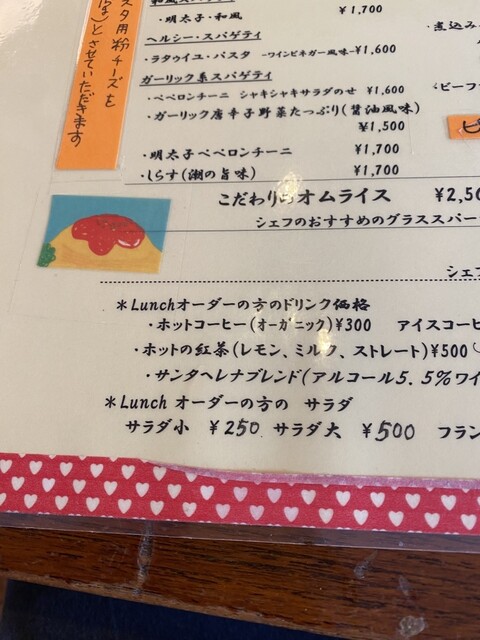 スタ用粉チーズを
とさせていただきます
和風スパゲティ
・明太子・和風 ¥1,700
ヘルシー・スパゲティ
・ラタゥイユ・パスタ -ワインビネガー風味- ¥1,600
ガーリック系スパゲティ
・ペペロンチーニ シャキシャキサラダのせ ¥1,600
・ガーリック唐辛子野菜たっぷり(醤油風味)
¥1,500
・明太子ペペロンチーニ ¥1,700
・しらす(潮の旨味) ¥1,700
こだわりのオムライス ¥2,50
シェフのおすすめのグラススパー
シェフ
*Lunchオーダーの方のドリンク価格
・ホットコーヒー(オーガニック)¥300 アイスコーヒ
・ホットの紅茶(レモン、ミルク、ストレート)¥500
・サンタヘレナブレンド(アルコール5.5%ワイ
*Lunch オーダーの方の サラダ
サラダ小 ¥250 サラダ大 ¥500 フラン
・煮込み
ビーフ
ピ